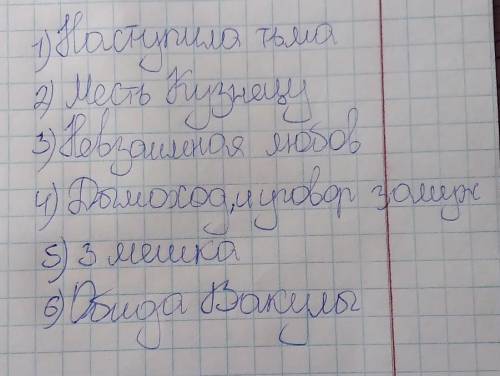 1) Наступила тьма
2) Месть Кузнецу
3) Невзаимная любов
4) Дымоход, уговор замуж
5) 3 мешка
6) Обида Вакулы